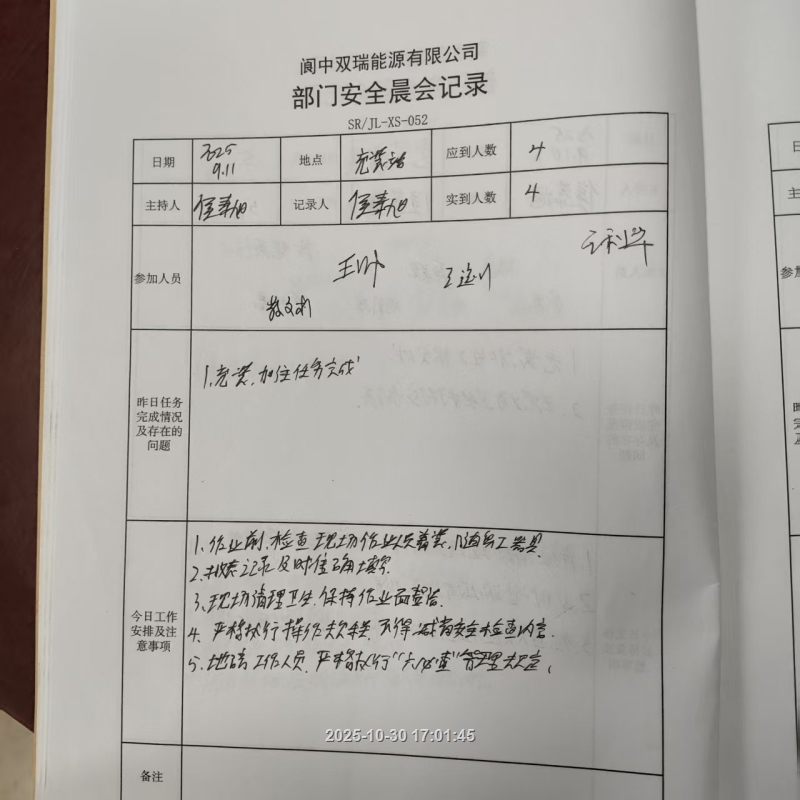 阆中双瑞能源有限公司
部门安全晨会记录
SR/JL-XS-052
日期 2025 9.11 地点 充装站 应到人数 4
主持人 记录人 实到人数 4
参加人员
昨日任务完成情况及存在的问题
1、充装、加注任务完成
今日工作安排及注意事项
1、作业前、检查现场作业人员着装、随身工器具
2、记录及时准确填写
3、现场清理卫生、保持作业面整洁
4、严格执行操作规程、不得减省安全检查内容
5、地磅工作人员、严格执行“六必查”管理规定、
备注
2025-10-30 17:01:45